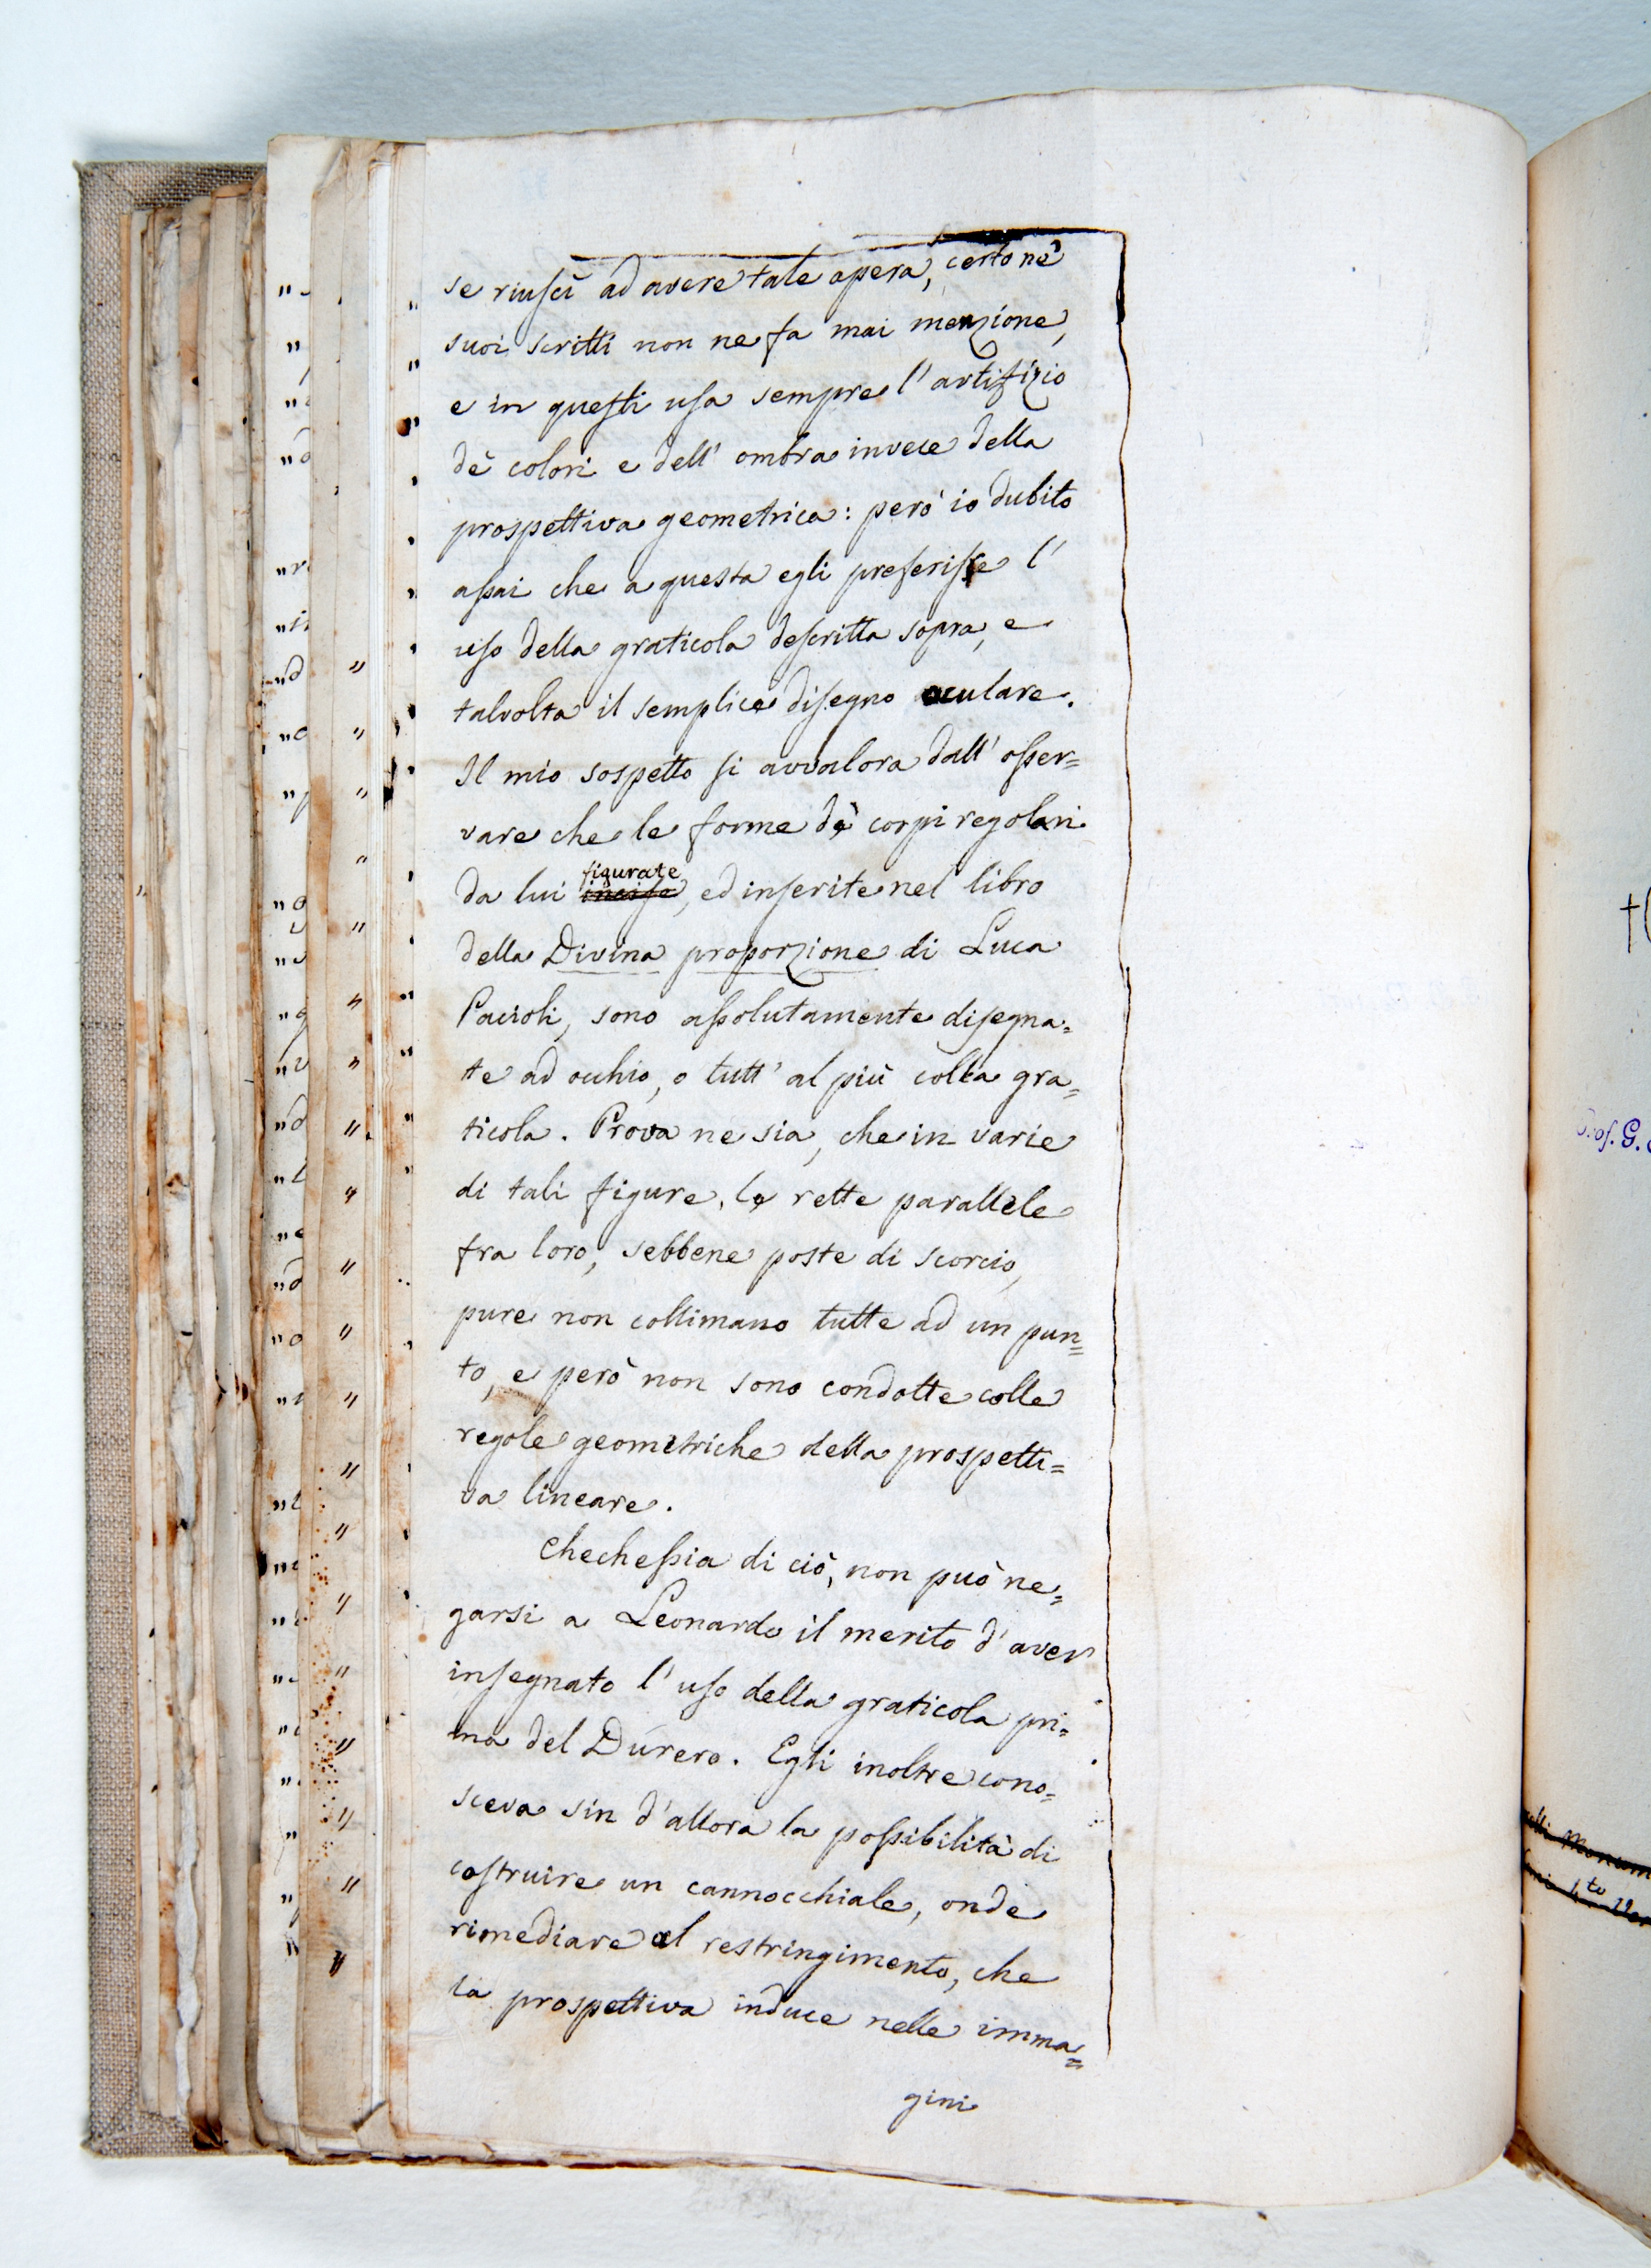 se riuscì ad avere tale opera, certo ne'
suoi scritti non ne fa mai menzione,
e in questi usa sempre l'artifizio
de' colori e dell' ombra invece della
prospettiva geometrica: però io dubito
assai che a questa egli preferisse l'
uso della graticola descritta sopra, e
talvolta il semplice disegno oculare.
Il mio sospetto si avvalora dall' osser=
vare che le forme de' corpi regolari
figurate
da lui incise, ed inserite nel libro
della Divina proporzione di Luca
Pacioli, sono assolutamente disegna=
te ad occhio, o tutt' al più colla gra=
ticola. Prova ne sia, che in varie
di tali figure, le rette parallele
fra loro, sebbene poste di scorcio,
pure non collimano tutte ad un pun=
to, e però non sono condotte colle
regole geometriche della prospetti=
va lineare.
Checchessia di ciò, non può ne=
garsi a Leonardo il merito d'aver
insegnato l'uso della graticola pri=
ma del Durero. Egli inoltre cono=
sceva sin d'allora la possibilità di
costruire un cannocchiale, onde
rimediare al restringimento, che
la prospettiva induce nelle imma=
gini